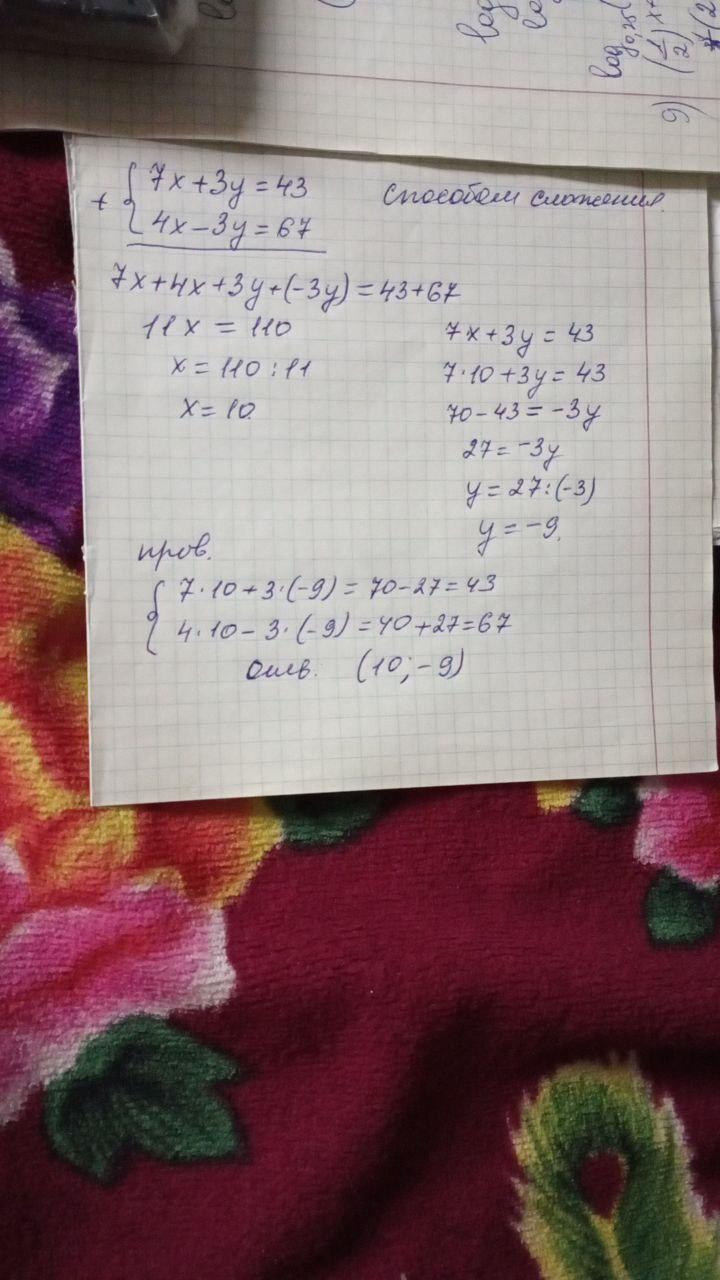 log
log
log
log₀,₂₅(
(1/2)x+
9)
7(2
+ { 7x+3y=43
4x-3y=67
Способом сложения.
7x+4x+3y+(-3y)=43+67
11x = 110
x=110:11
x=10.
7x+3y=43
7·10+3y=43
70-43=-3y
27=-3y
y=27:(-3)
y=-9.
пров.
{ 7·10+3·(-9)=70-27=43
4·10-3·(-9)=40+27=67
Отв. (10;-9)